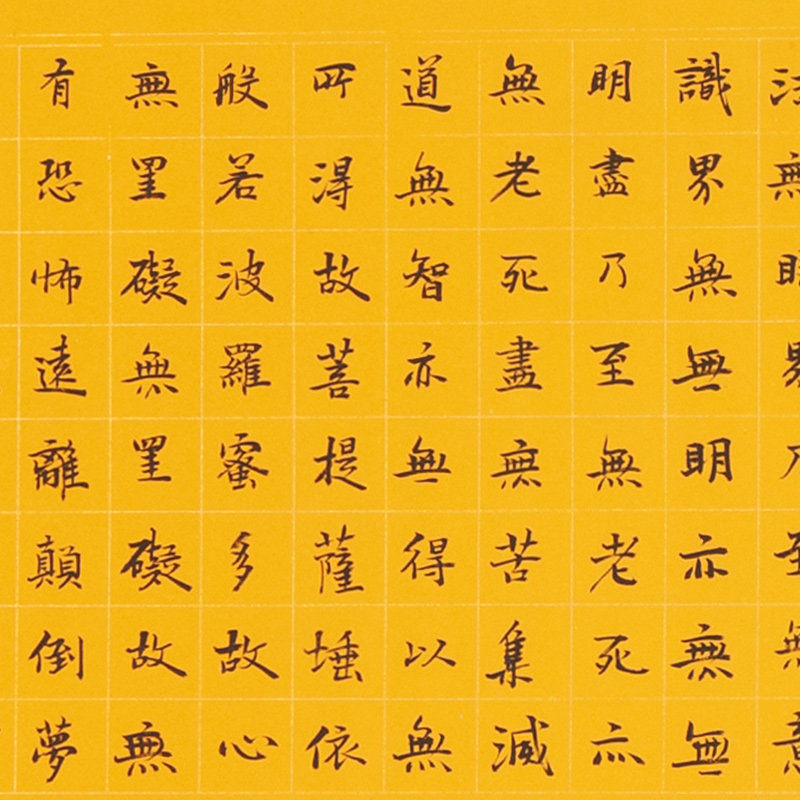 法無眼界乃至無意
識界無無明亦無無
明盡乃至無老死亦
無老死盡無苦集滅
道無智亦無得以無
所得故菩提薩埵依
般若波羅蜜多故心
無罣礙無罣礙故無
有恐怖遠離顛倒夢